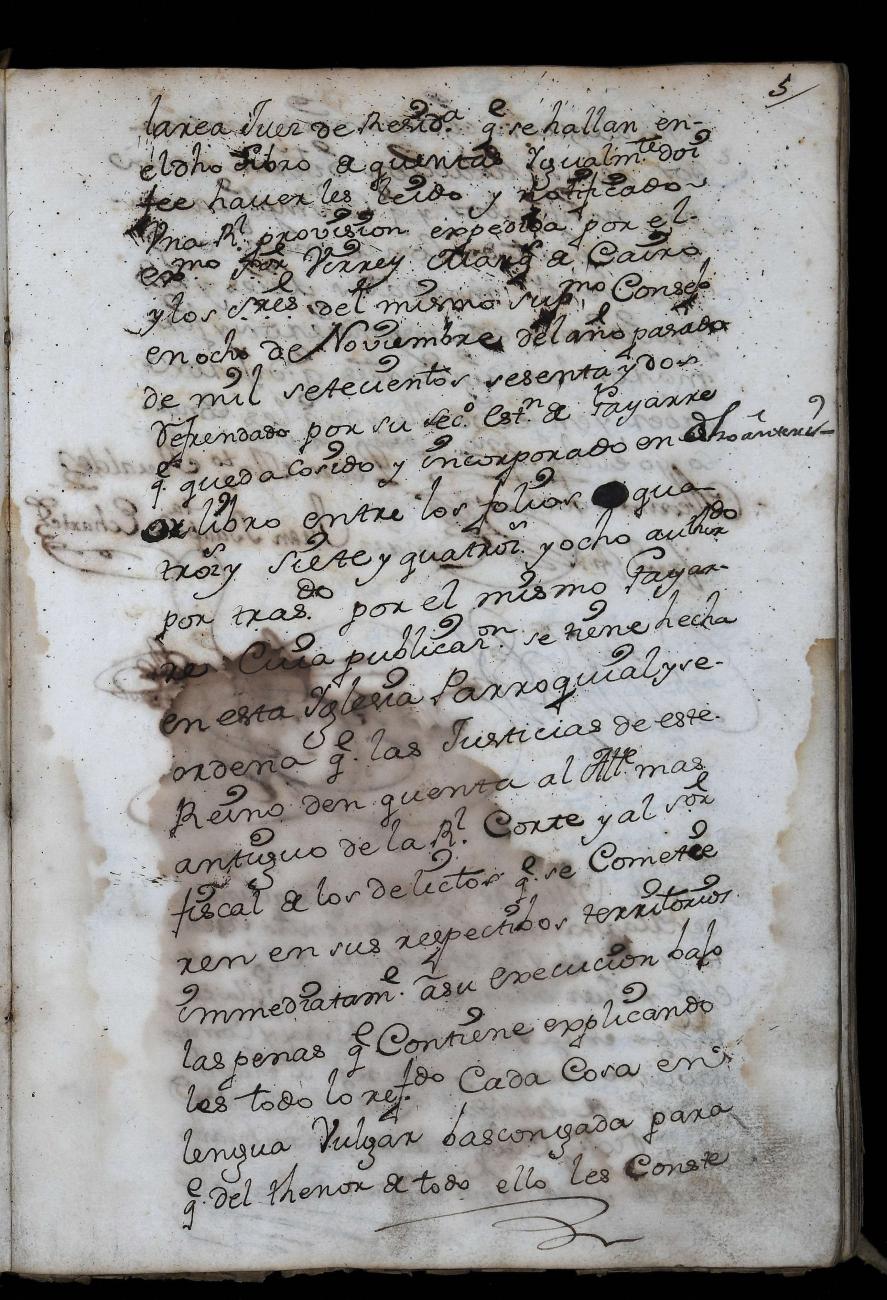 5
larea Juez de Resid.ª q.e se hallan en-
el dho Libro de quentas Igualm.te doi
fee haver les leido y notificado
Vna R.l provision expedida por el
ex.mo Señor Virrey Marq.s de Cairo
y los S.res del mismo sup.mo Consejo
en ocho de Noviembre del año pasado
de mil setecientos sesenta y dos
Refrendado por su Sec.o Est.n de Gayarre
q.e queda cosido y incorporado en dho anteri-
or libro entre los folios qua
trozi y siete y quatrozi. y ocho
por tras.do por el mismo Gayar-
re Cuia publicaz.on se tiene hecha
en esta Iglesia Parroquial y se-
ordena q.e las Justicias de este.
Reino den quenta al Alle mas
antiguo de la R.l Corte y al s.or
fiscal de los delictos q.e se Cometie
ren en sus respectibos territorios.
immediatam.e a su execucion bajo
las penas q.e Contiene explicando
les todo lo ref.do Cada Cosa en
lengua Vulgar bascongada para
q.e del thenor de todo ello les Conste